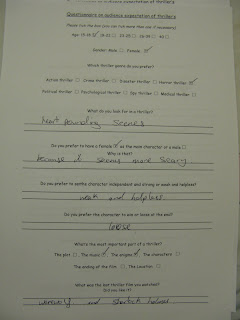 Questionnaire on audience expectation of thrillers
Questionnaire on audience expectation of thrillers
Please tick the box (you can tick more than one if necessary)
Age: 15-18 ✓ 19-21 □ 22-25 □ 26-39 □ 40 □
Gender: Male □ Female ✓
Which thriller genre do you prefer?
Action thriller □ Crime thriller □ Disaster thriller □ Horror thriller ✓
Political thriller □ Psychological thriller □ Spy thriller □ Medical thriller □
What do you look for in a thriller?
heart pounding scenes
Do you prefer to have a female ✓ as the main character or a male □
Why is that?
because it seems more scary
Do you prefer to see the character independent and strong or weak and helpless?
weak and helpless
Do you prefer the character to win or loose at the end?
loose
What's the most important part of a thriller?
The plot □ The music ✓ The enigma ✓ The characters □
The ending of the film □ The location □
What was the last thriller film you watched?
Did you like it?
and